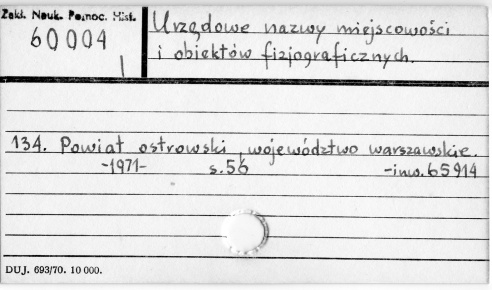 Zakł. Nauk. Pomoc. Hist.
60004
I
Urzędowe nazwy miejscowości
i obiektów fizjograficznych.
134. Powiat ostrowski, województwo warszawskie.
-1971- s.56 -inw. 65914
DUJ. 693/70. 10 000.